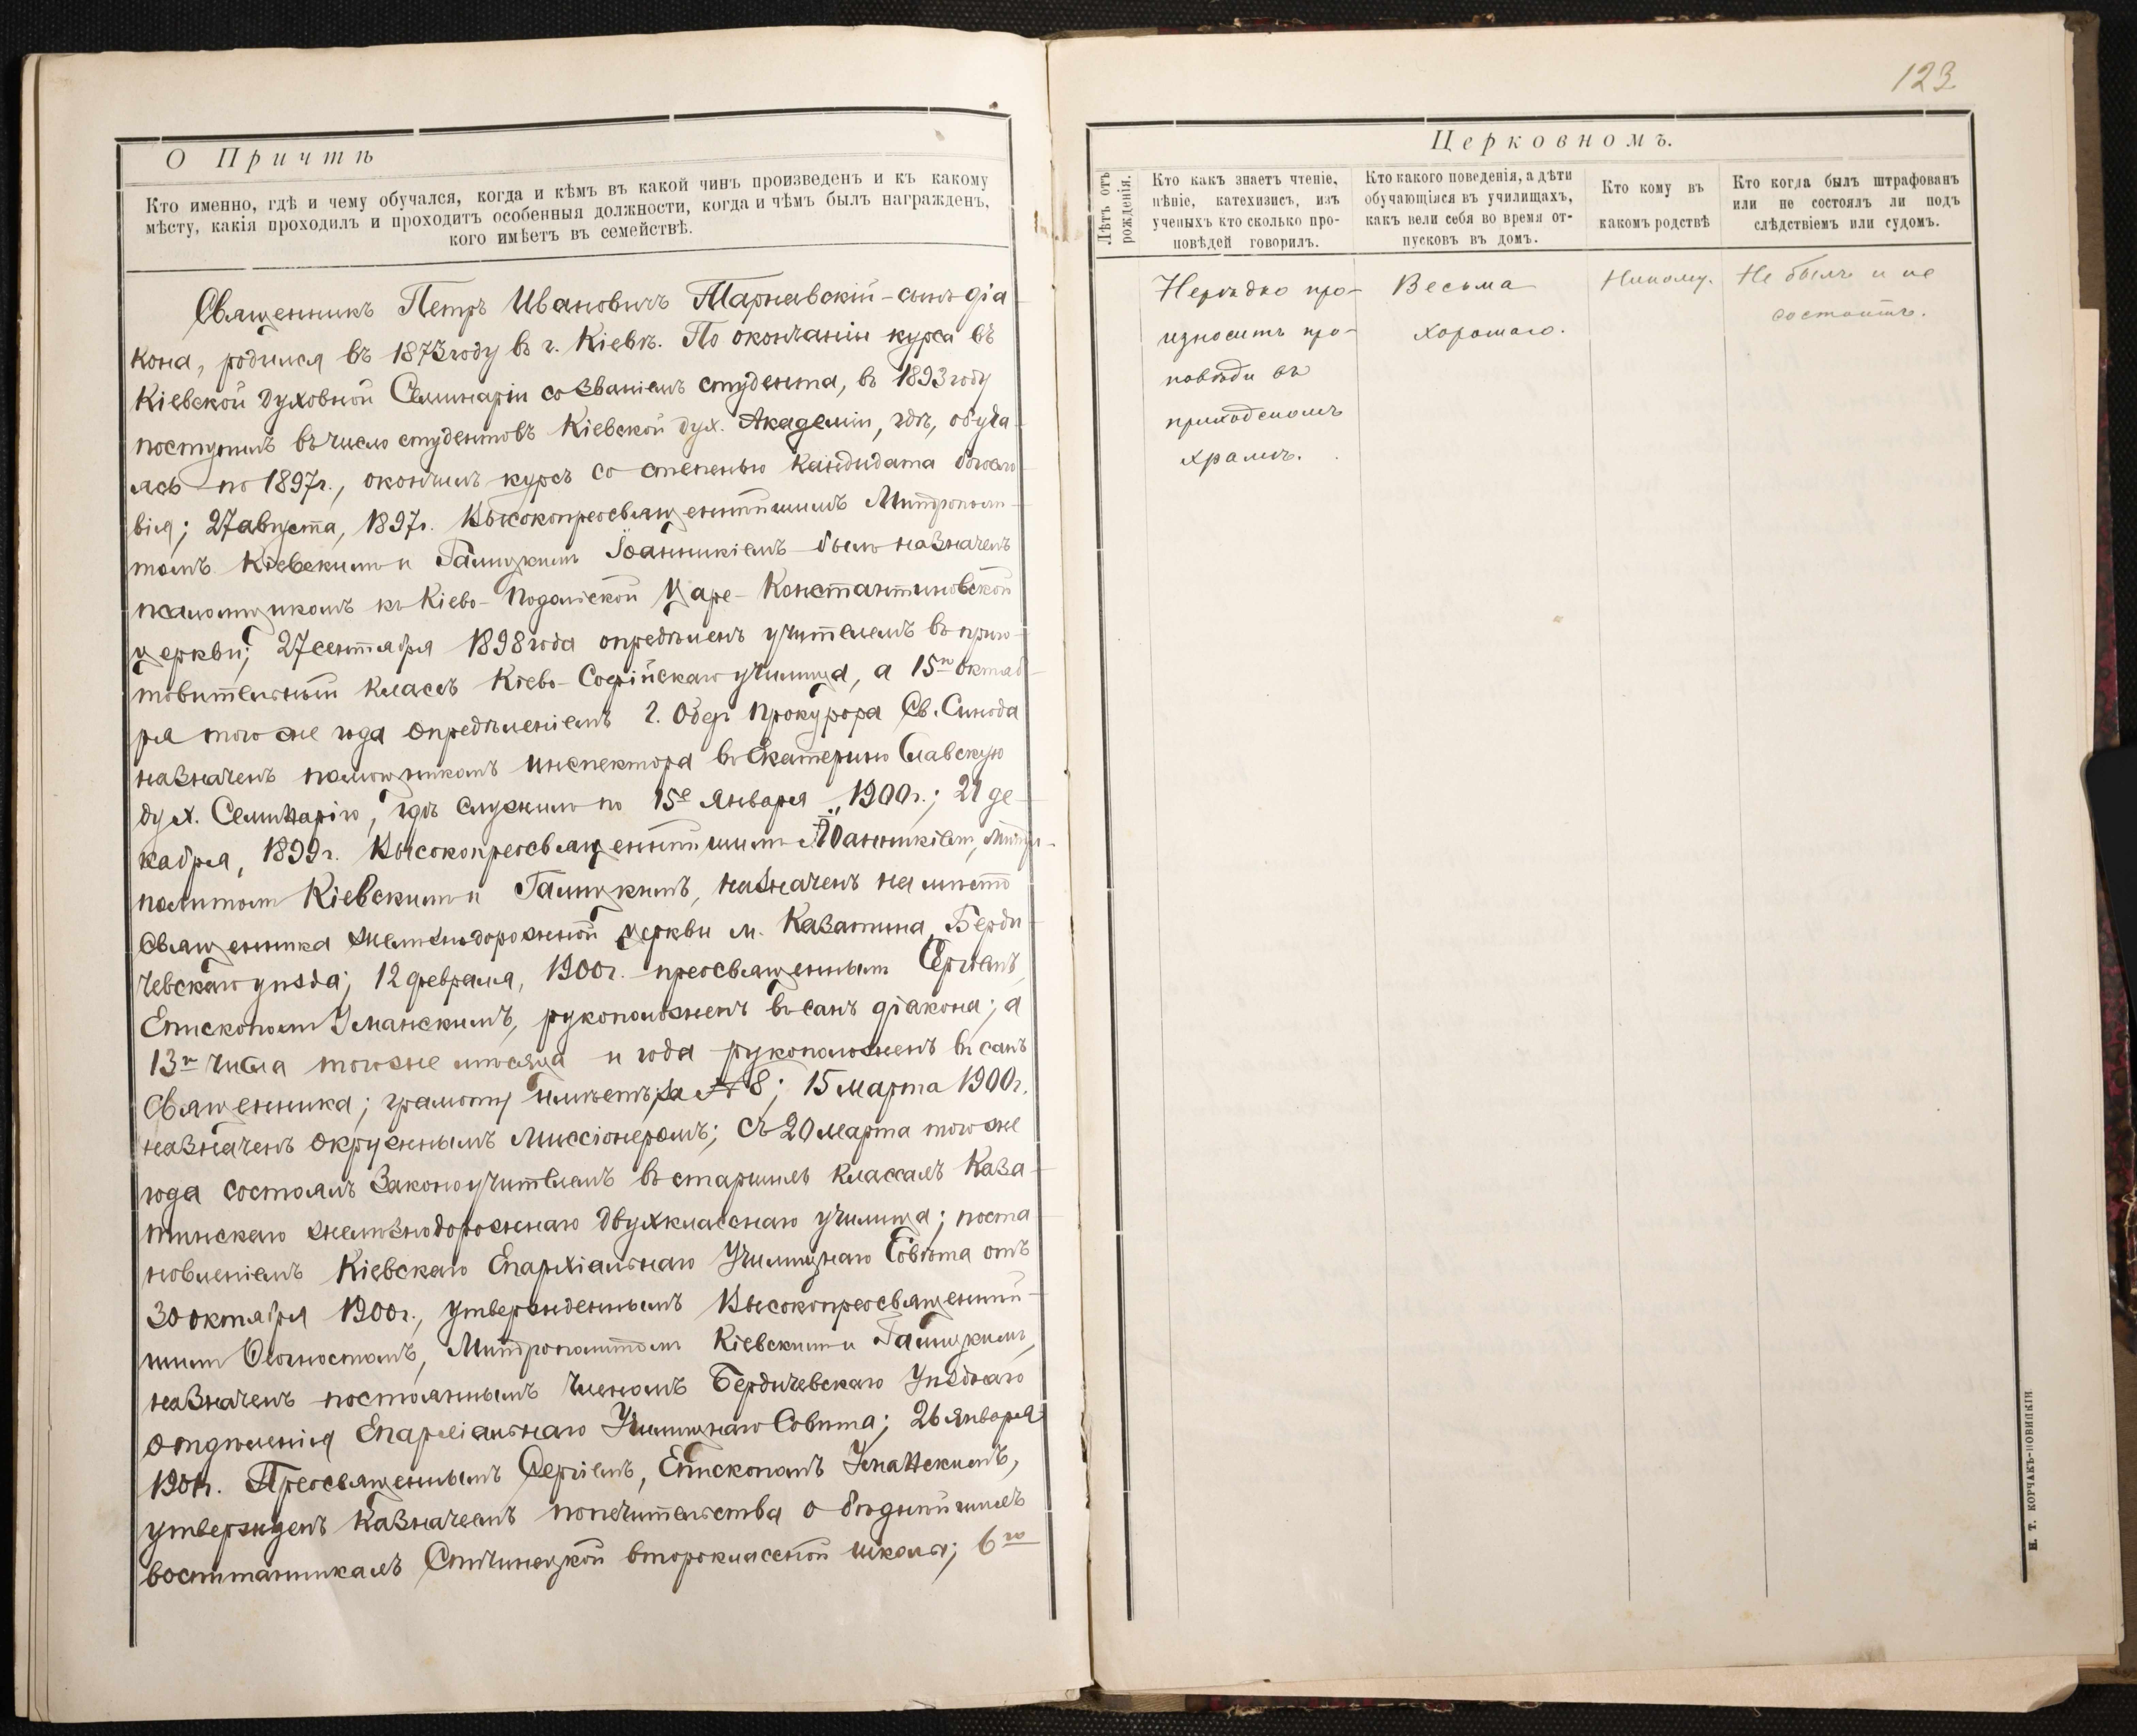 О Причтѣ
Кто именно, гдѣ и чему обучался, когда и кѣмъ въ какой чинъ произведенъ и къ какому
мѣсту, какія проходилъ и проходитъ особенныя должности, когда и чѣмъ былъ награжденъ,
кого имѣетъ въ семействѣ.
Священникъ Петръ Ивановичъ Тарнавскій - сынъ діа-
кона, родился въ 1873 году въ г. Кіевѣ. По окончаніи курса въ
Кіевской Духовной Семинаріи со званіемъ студента, въ 1893 году
поступилъ въ число студентовъ Кіевской Дух. Академіи, гдѣ, обуча-
ясь по 1897 г., окончилъ курсъ со степенью Кандидата богосло-
вія; 27 августа, 1897 г. Высокопреосвященнѣйшимъ Митрополи-
томъ Кіевскимъ и Галицкимъ Іоанникіемъ былъ назначенъ
псаломщикомъ къ Кіево-Подольской Царе-Константиновской
церкви; 27 сентября 1898 года опредѣленъ учителемъ въ приго-
товительный классъ Кіево-Софійскаго училища, а 15го октяб-
ря того же года опредѣленіемъ г. Обер Прокурора Св. Синода
назначенъ помощникомъ инспектора въ Екатеринославскую
дух. Семинарію, гдѣ служилъ по 15е января 1900 г.; 21 де-
кабря, 1899 г. Высокопреосвященнѣйшимъ Іоанникіем, Митро-
политом Кіевскимъ и Галицкимъ, назначенъ на мѣсто
священника желѣзнодорожной церкви м. Казатина, Берди-
чевскаго уѣзда; 12 февраля, 1900 г. преосвященным Сергіемъ,
Епископом Уманскимъ, рукоположенъ въ санъ діакона; а
13го числа того же мѣсяца и года рукоположенъ въ санъ
Священника; грамоту имѣетъ за № 8; 15 марта 1900 г.
назначенъ окружнымъ Миссіонеромъ; съ 20 марта того же
года состоялъ Законоучителемъ въ старшихъ классахъ Каза-
тинскаго желѣзнодорожнаго двухкласснаго училища; поста-
новленіемъ Кіевскаго Епархіальнаго Училищнаго Совѣта отъ
30 октября 1900 г., утвержденнымъ Высокопреосвященнѣй-
шимъ Ѳеогностомъ, Митрополитом Кіевскимъ и Галицкимъ,
назначенъ постояннымъ членомъ Бердичевскаго Уѣзднаго
Отдѣленія Епархіальнаго Училищнаго Совѣта; 26 января
1901 г. Преосвященнымъ Сергіемъ, Епископомъ Уманскимъ,
утвержденъ Казначеемъ попечительства о бѣднѣйшихъ
воспитанникахъ второклассной школы; 6го
123
Церковномъ.
Лѣтъ отъ
рожденія.
Кто какъ знаетъ чтеніе,
пѣніе, катехизисъ, изъ
ученыхъ кто сколько про-
повѣдей говорилъ.
Кто какого поведенія, а дѣти
обучающіяся въ училищахъ,
какъ вели себя во время от-
пусковъ въ домъ.
Кто кому въ
какомъ родствѣ
Кто когда былъ штрафованъ
или не состоялъ ли подъ
слѣдствіемъ или судомъ.
Нерѣдко про-
износитъ про-
повѣди въ
приходскомъ
храмѣ.
Весьма
хорошаго.
Никому.
Не былъ и не
состоитъ.
Н. Т. КОРЧАКЪ-НОВИЦКІЙ